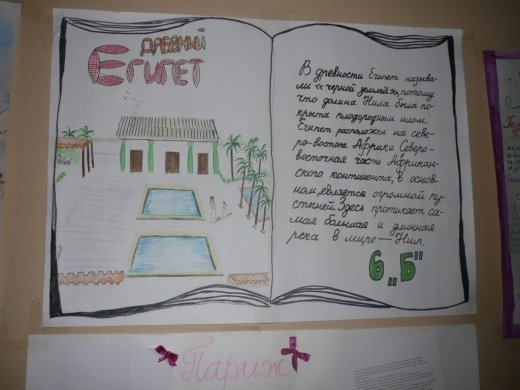 Древний
Египет
В древности Египет называ-
ли «черной землей», потому
что долина Нила была по-
крыта плодородным илом.
Египет расположен на севе-
ро-востоке Африки. Северо-
восточная часть Африкан-
ского континента, в основ-
ном является огромной пу-
стыней. Здесь протикает са-
мая большая и длинная
река в мире — Нил.
6 „Б"
Париж